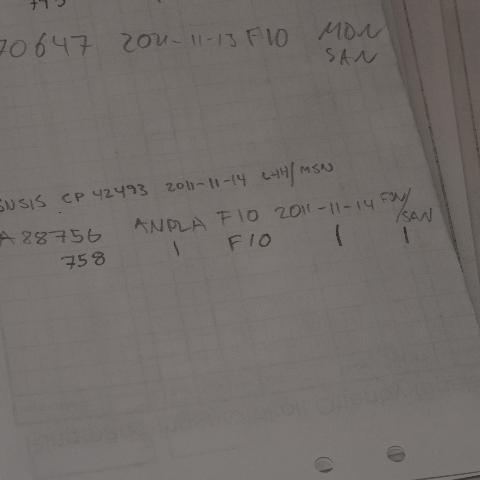 70647 2011-11-13 F10 MDN
SAN
SNSIS CP 42493 2011-11-14 /MSN
A88756 ANPLA F10 2011-11-14 /SAN
758 | F10 | |